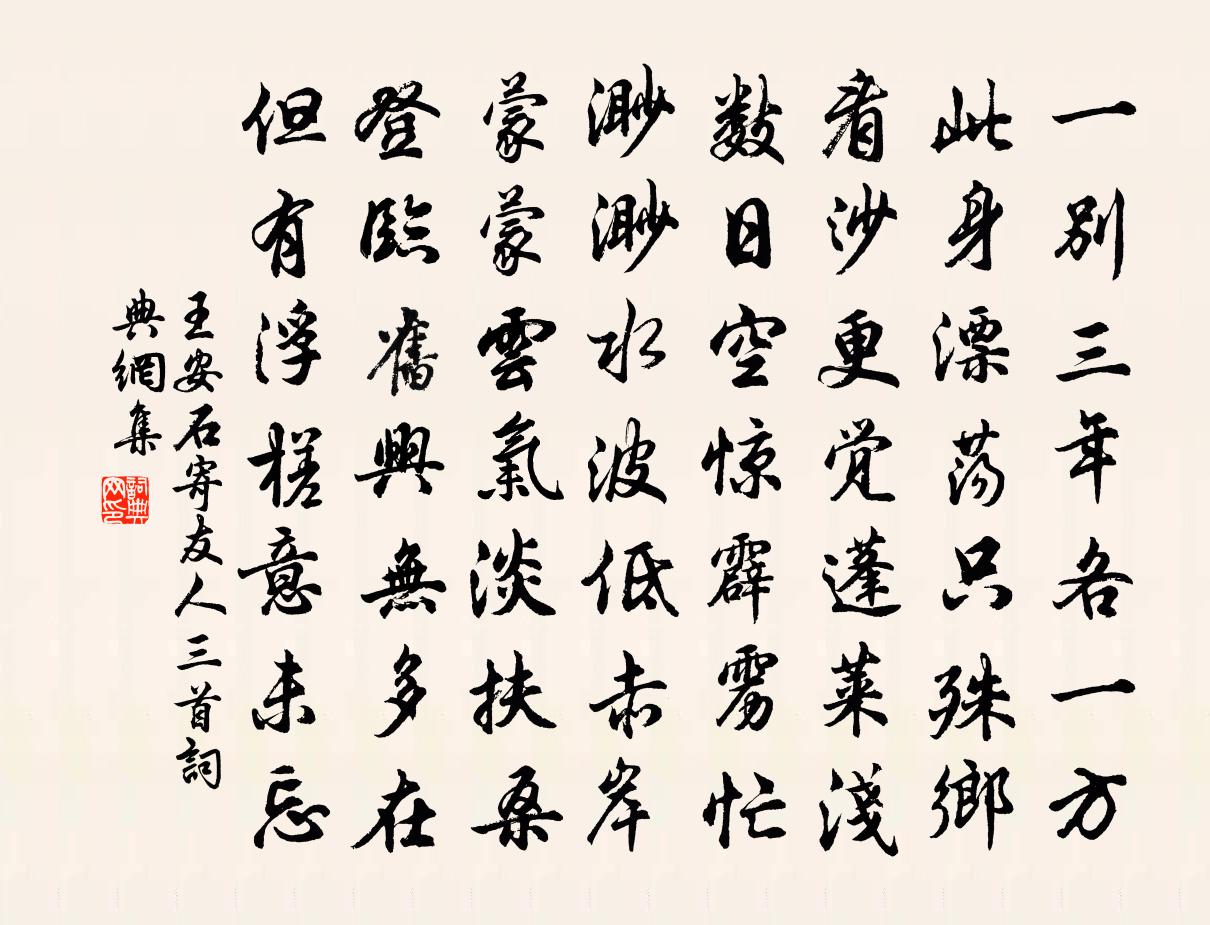 一別三年各一方
此身漂蕩只殊鄉
看沙更覺蓬萊淺
數日空惊霹雳忙
渺渺水波低赤岸
蒙蒙雲氣淡扶桑
登臨舊興無多在
但有浮槎意未忘
王安石寄友人三首詞
典網集
詞典网印